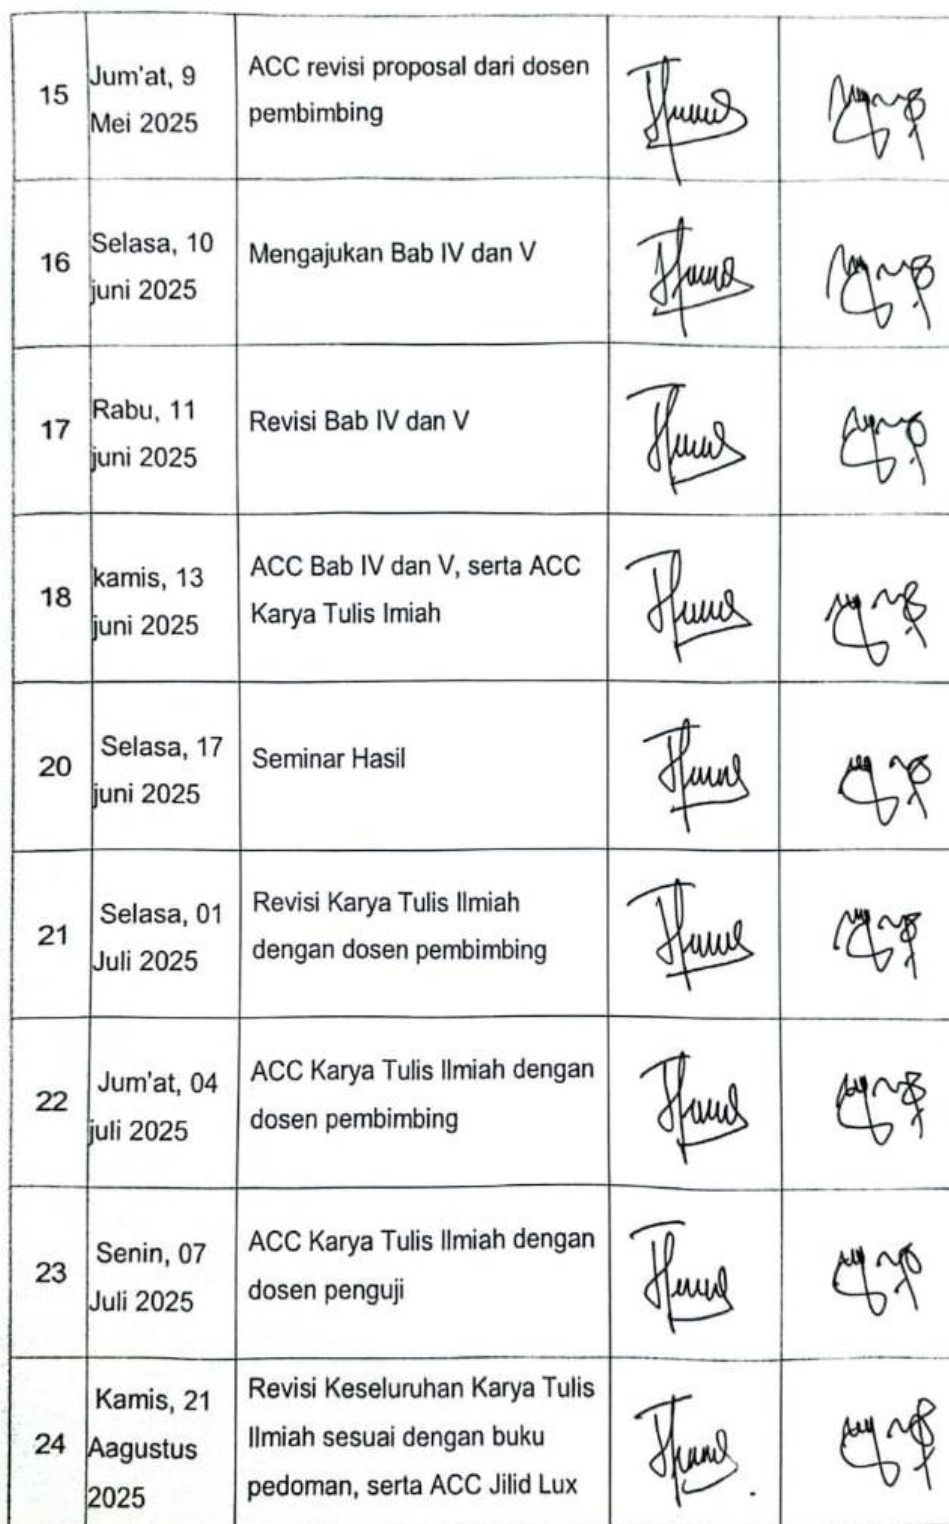 15
Jum'at, 9
Mei 2025
ACC revisi proposal dari dosen
pembimbing
16
Selasa, 10
juni 2025
Mengajukan Bab IV dan V
17
Rabu, 11
juni 2025
Revisi Bab IV dan V
18
kamis, 13
juni 2025
ACC Bab IV dan V, serta ACC
Karya Tulis Imiah
20
Selasa, 17
juni 2025
Seminar Hasil
21
Selasa, 01
Juli 2025
Revisi Karya Tulis Ilmiah
dengan dosen pembimbing
22
Jum'at, 04
juli 2025
ACC Karya Tulis Ilmiah dengan
dosen pembimbing
23
Senin, 07
Juli 2025
ACC Karya Tulis Ilmiah dengan
dosen penguji
24
Kamis, 21
Aagustus
2025
Revisi Keseluruhan Karya Tulis
Ilmiah sesuai dengan buku
pedoman, serta ACC Jilid Lux